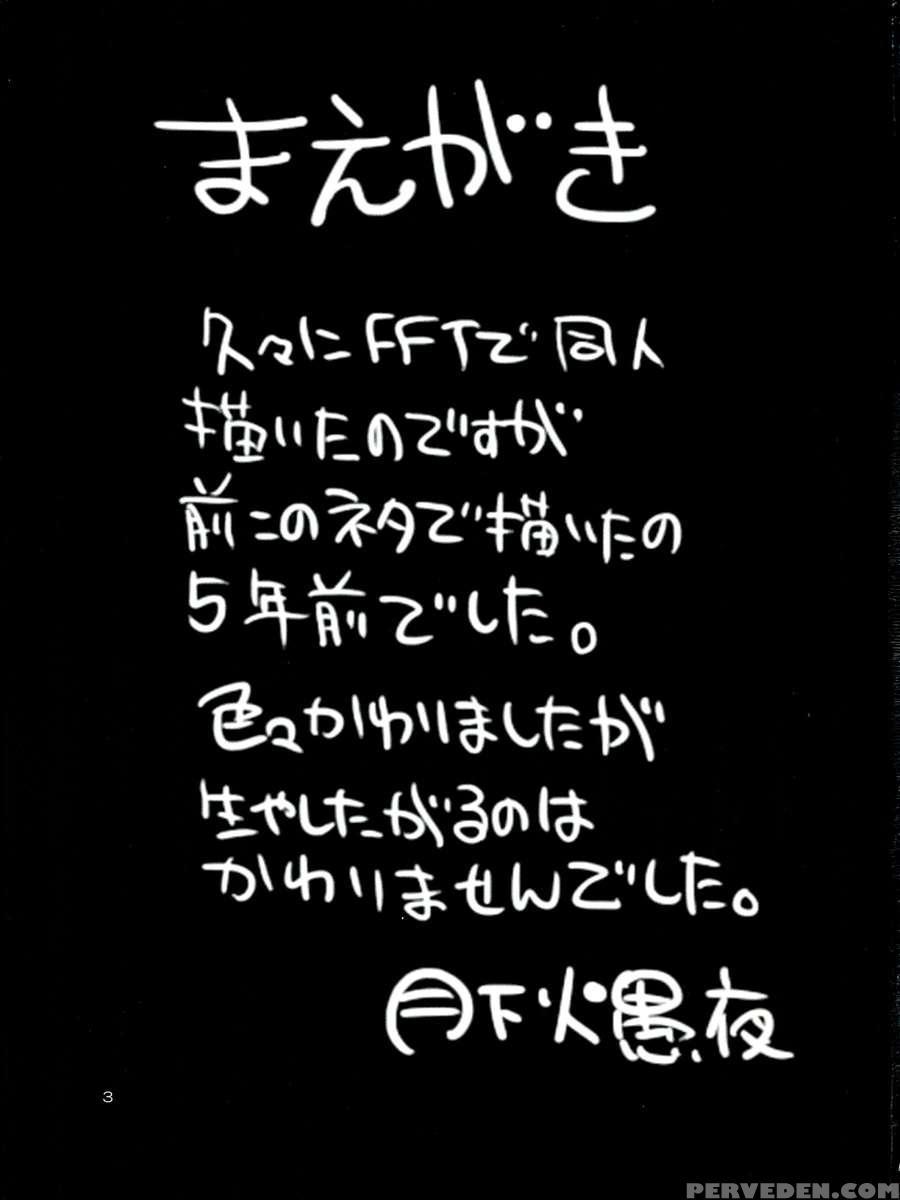 まえがき
久々にFFTで同人
描いたのですが
前このネタで描いたの
5年前でした。
色々かわりましたが
生やしたがるのは
かわりませんでした。
月下火愚夜
3
PERVEDEN.COM